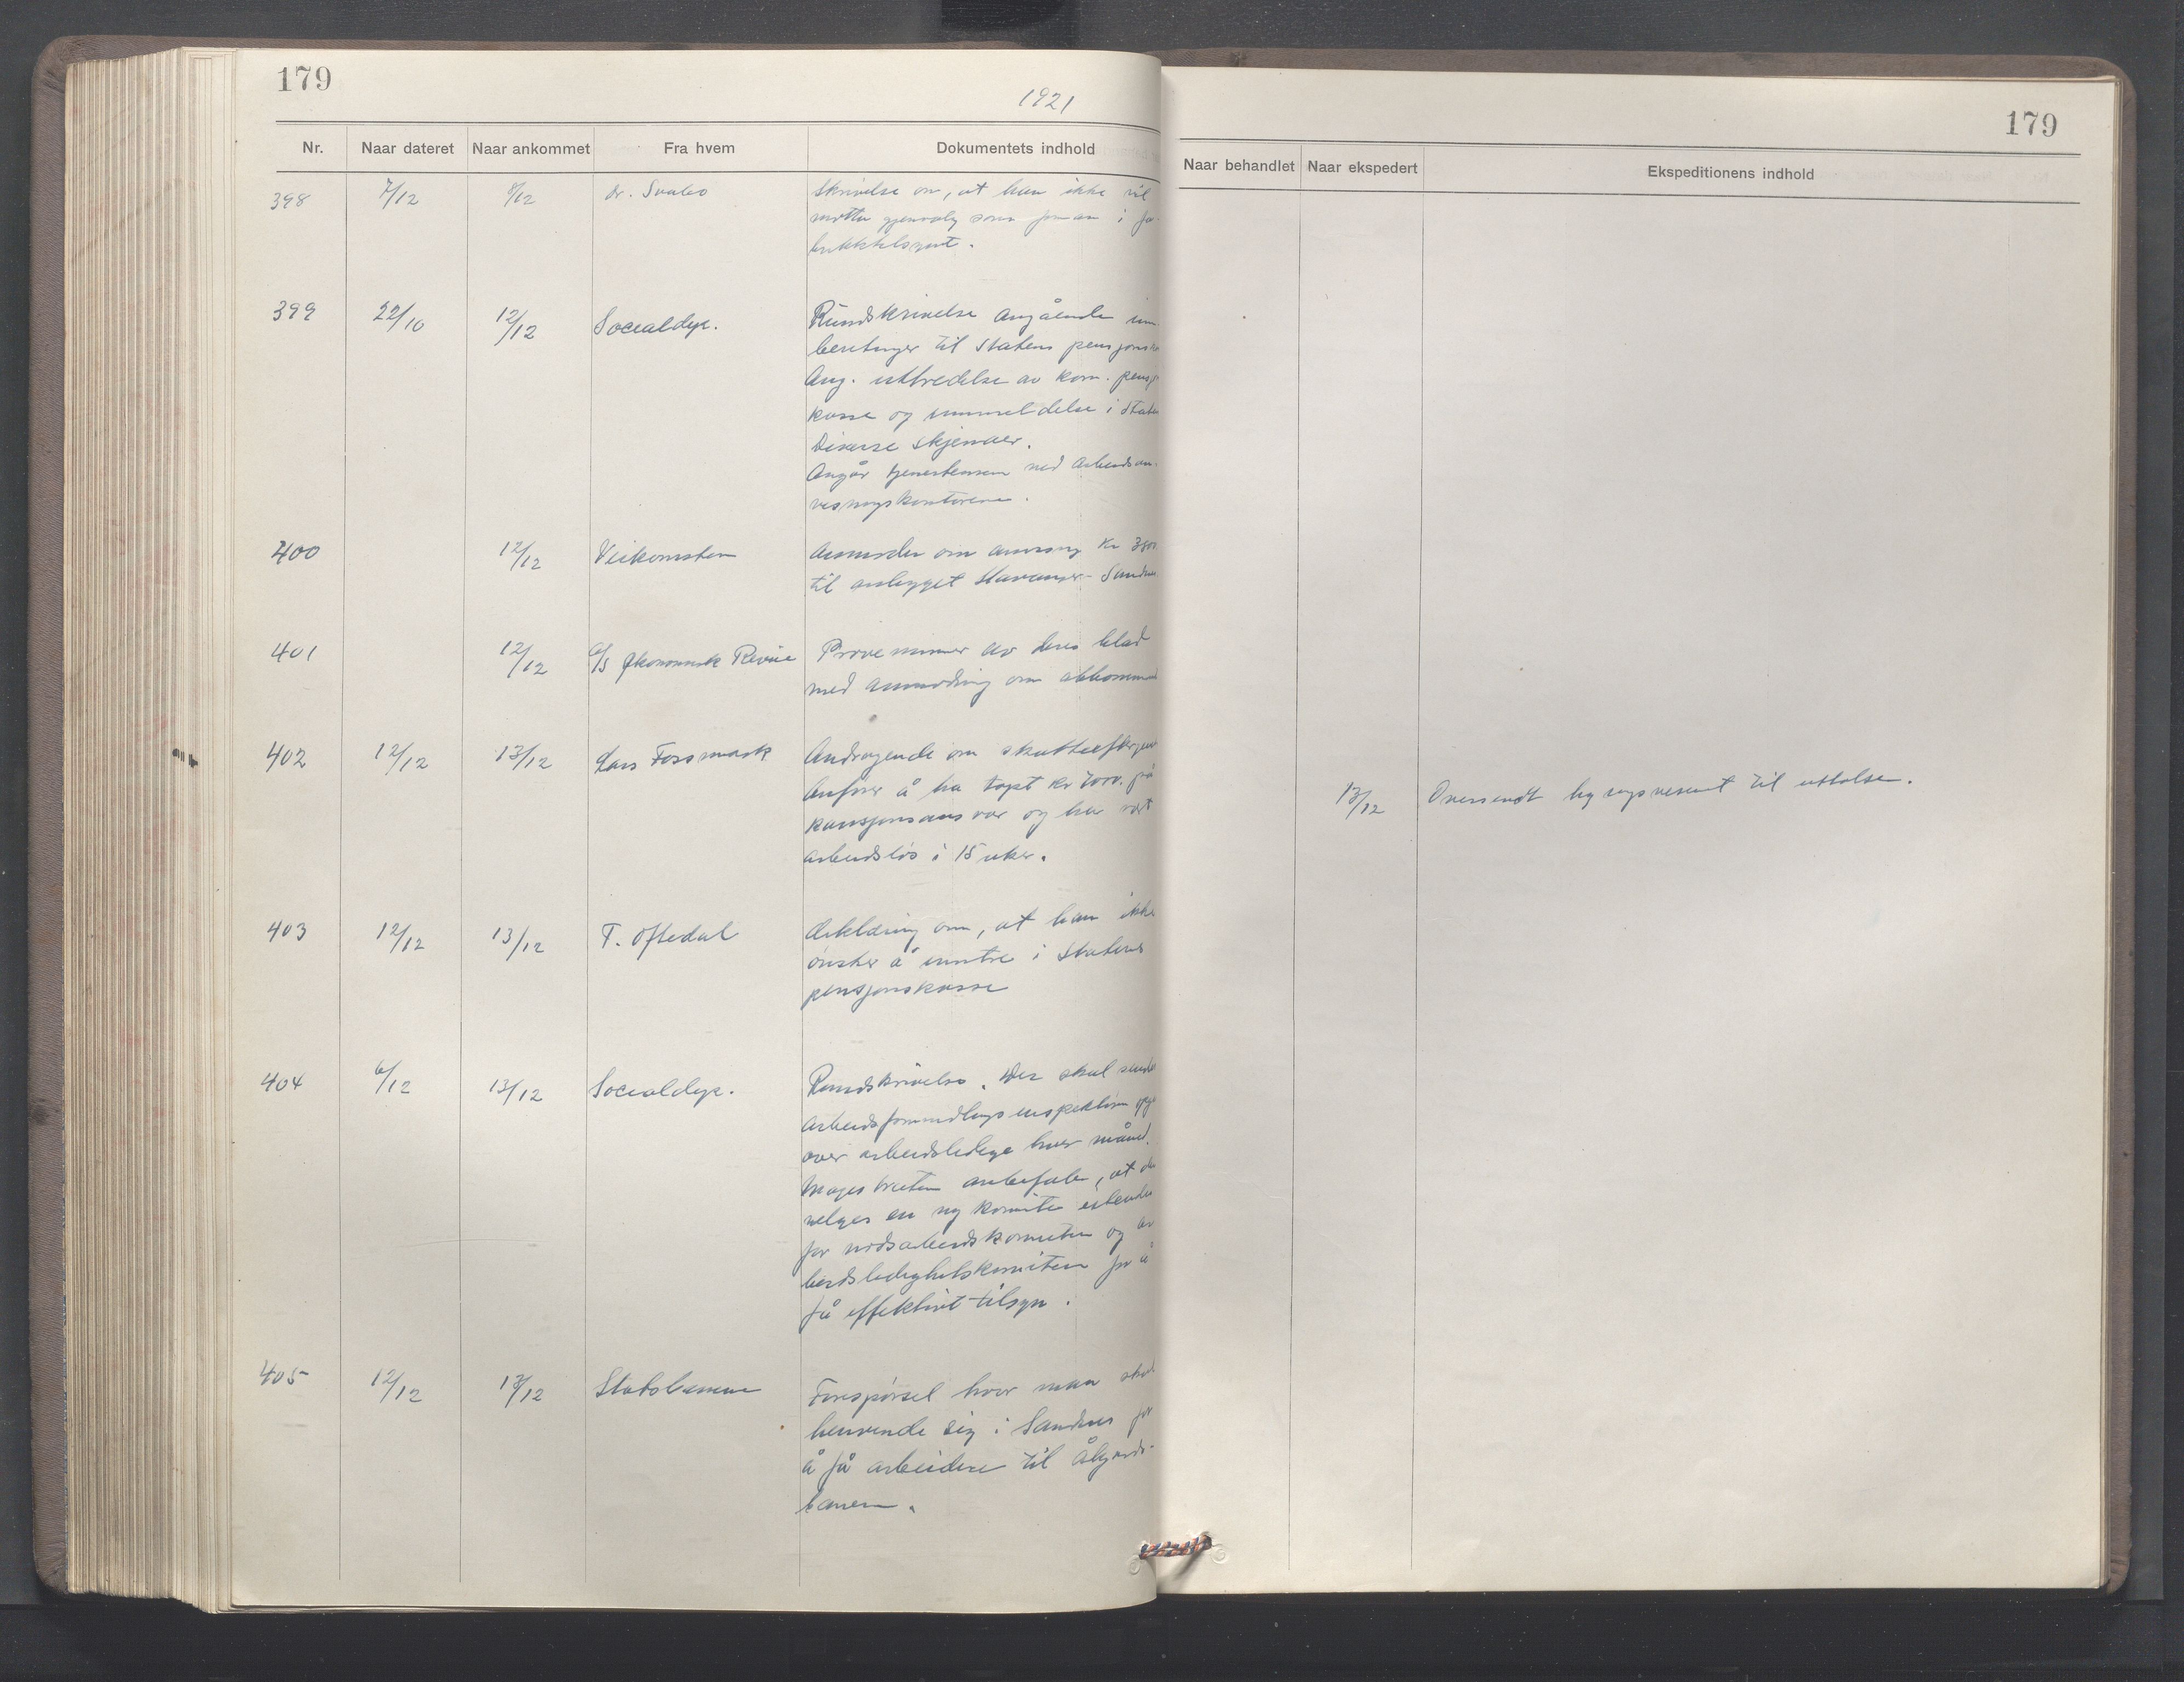 179
1921
Nr. Naar dateret Naar ankommet Fra hvem Dokumentets indhold
398 7/12 8/12 dr. Svabo Skrivelse om, at han ikke vil
motta gjenvalg som
399 22/10 12/12 Socialdep. Rundskrivelse angående inn
beretinger til Statens pensjons
Ang. utbredelse av kom. pensj
kasse og innmeldelse i Staten
Diverse skjemaer.
Angår tjenestemenn ved Arbeidsan-
visningskontorene.
400 12/12 Veikomiteen Anmoder om anvisng kr
til anlegget Stavanger-Sandnes
401 12/12 A/S Økonomisk Revue Prøvenummer av deres blad
med anmodning om abbonnement
402 12/12 13/12 Lars Fossmark Andragende om skatteeftergivel
Anfører å ha tapt kr på
kausjonsansvar og har vært
arbeidsløs i 15 uker.
403 12/12 13/12 T. Oftedal Erklæring om, at han ikke
ønsker å inntre i Statens
pensjonskasse
404 6/12 13/12 Socialdep. Rundskrivelse. Der skal sendes
arbeidsformidlings inspektøren opg
over arbeidsledige hver måned.
Magistraten anbefaler, at der
velges en ny komite istenden
for nødsarbeidskomiteen og ar
beidsledighetskomiteen for å
få effektivt tilsyn.
405 12/12 13/12 Statsbanene Forespørsel hvor man skal
henvende sig i Sandnes for
å få arbeidere til Ålgårds-
banen.
179
Naar behandlet Naar ekspedert Ekspeditionens indhold
13/12 Oversendt til uttalelse.